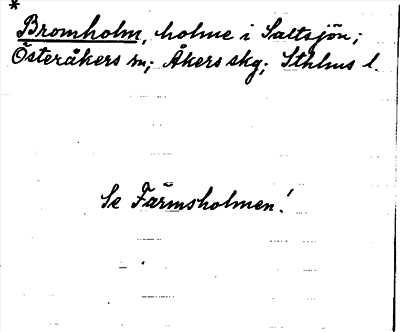 *
Bromholm, holme i Saltsjön;
Österåkers sn; Åkers skg; Sthlms l.
Se Färmsholmen!